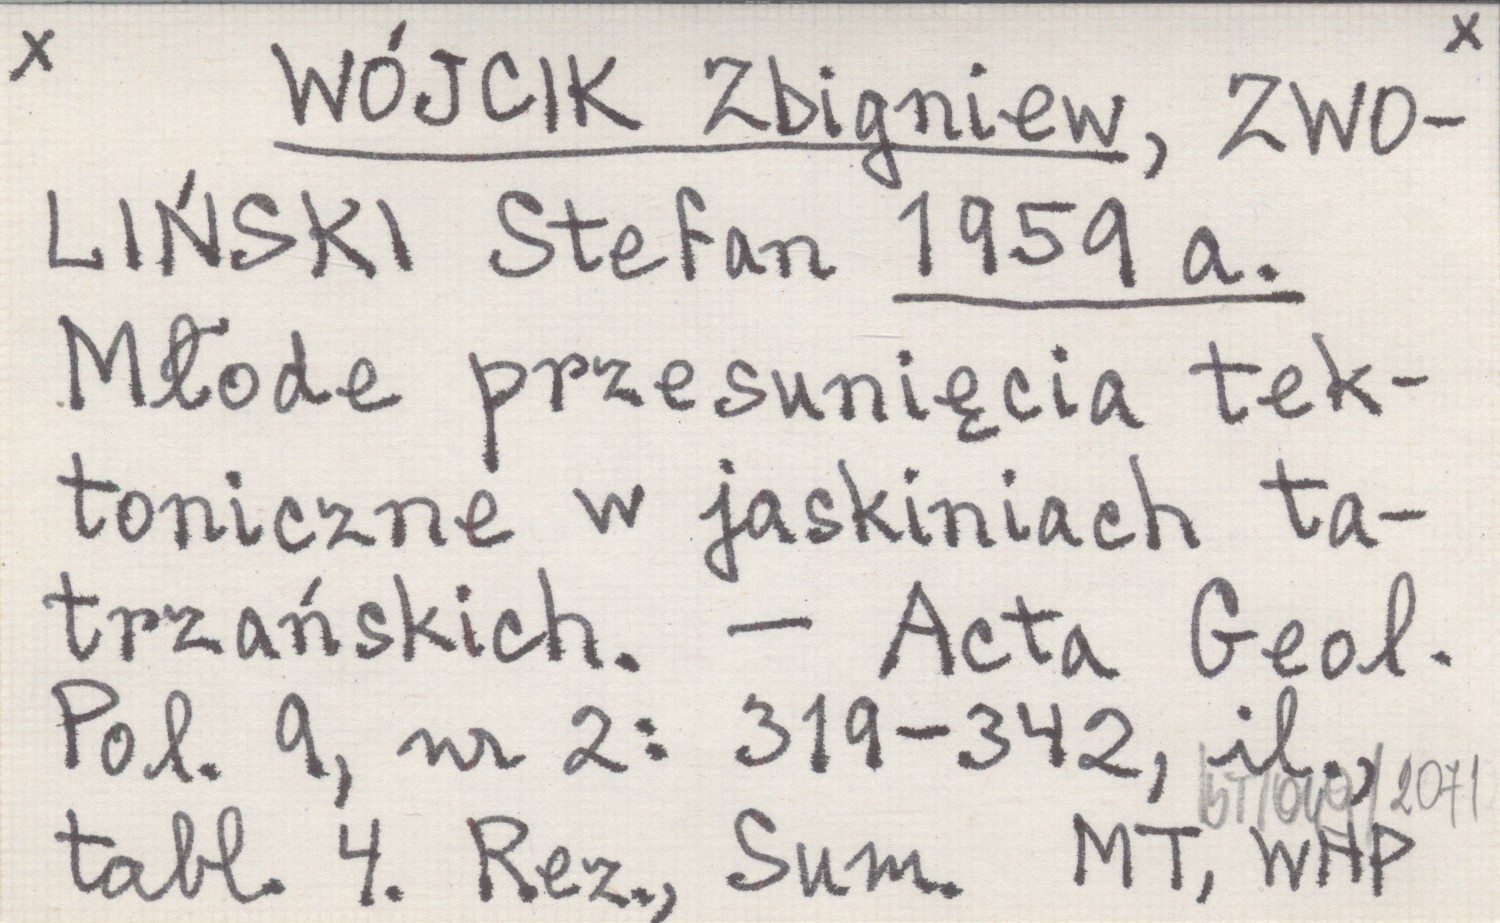 x x
WÓJCIK Zbigniew, ZWO-
LIŃSKI Stefan 1959 a.
Młode przesunięcia tek-
toniczne w jaskiniach ta-
trzańskich. — Acta Geol.
Pol. 9, nr 2: 319-342, il.,
/2071
tabl. 4. Rez., Sum. MT, WAP